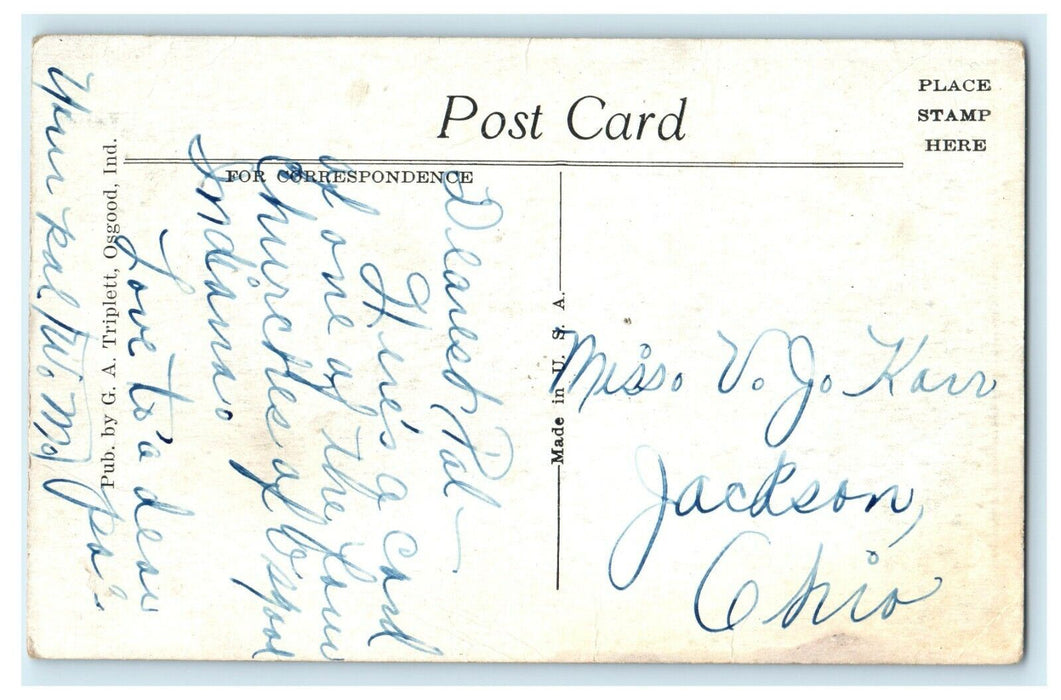 Post Card
PLACE
STAMP
HERE
FOR CORRESPONDENCE
Pub. by G. A. Triplett, Osgood, Ind.
Made in U. S. A.
Dearest Pal –
Here's a card
of one of the four
Churches of Osgood
Indiana.
Love to a dear
Your pal
Miss. V. J. Karr
Jackson,
Ohio